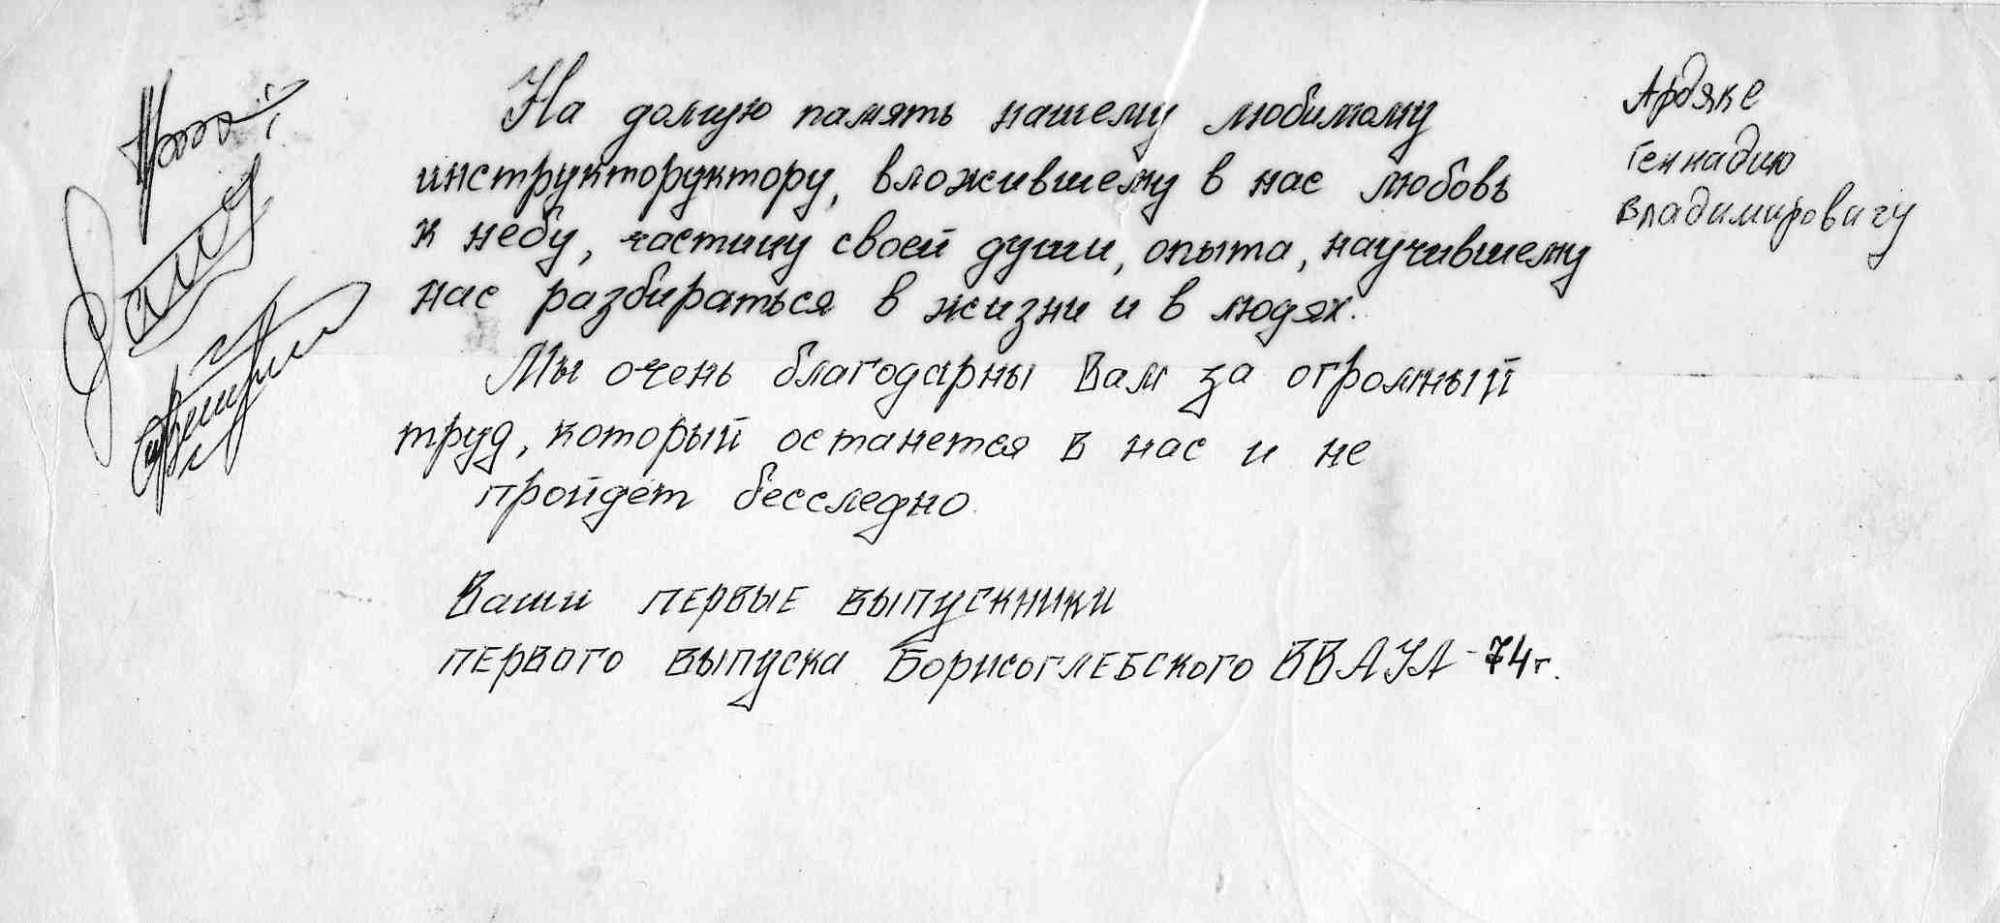 На долгую память нашему любимому
инструкторуктору, вложившему в нас любовь
к небу, частицу своей души, опыта, научившему
нас разбираться в жизни и в людях.
Мы очень благодарны Вам за огромный
труд, который останется в нас и не
пройдет бесследно.
Ваши первые выпускники
первого выпуска Борисоглебского ВВАУЛ - 74 г.
Ардяке
Геннадию
Владимировичу